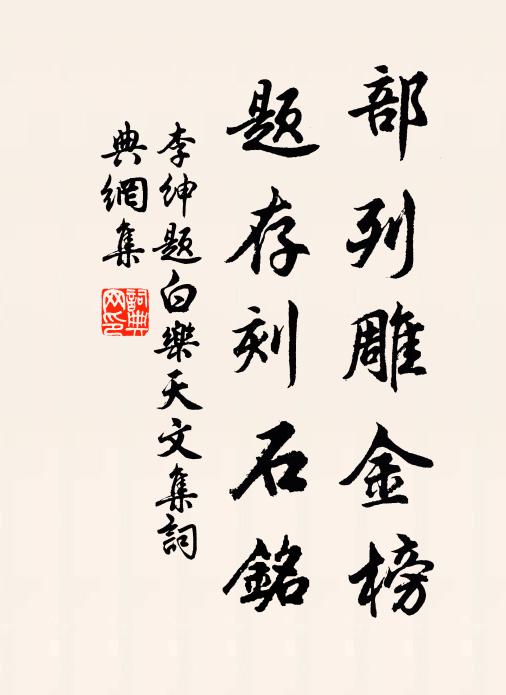 部列雕金榜
題存刻石銘
李紳題白樂天文集詞
典網集
詞典
网印